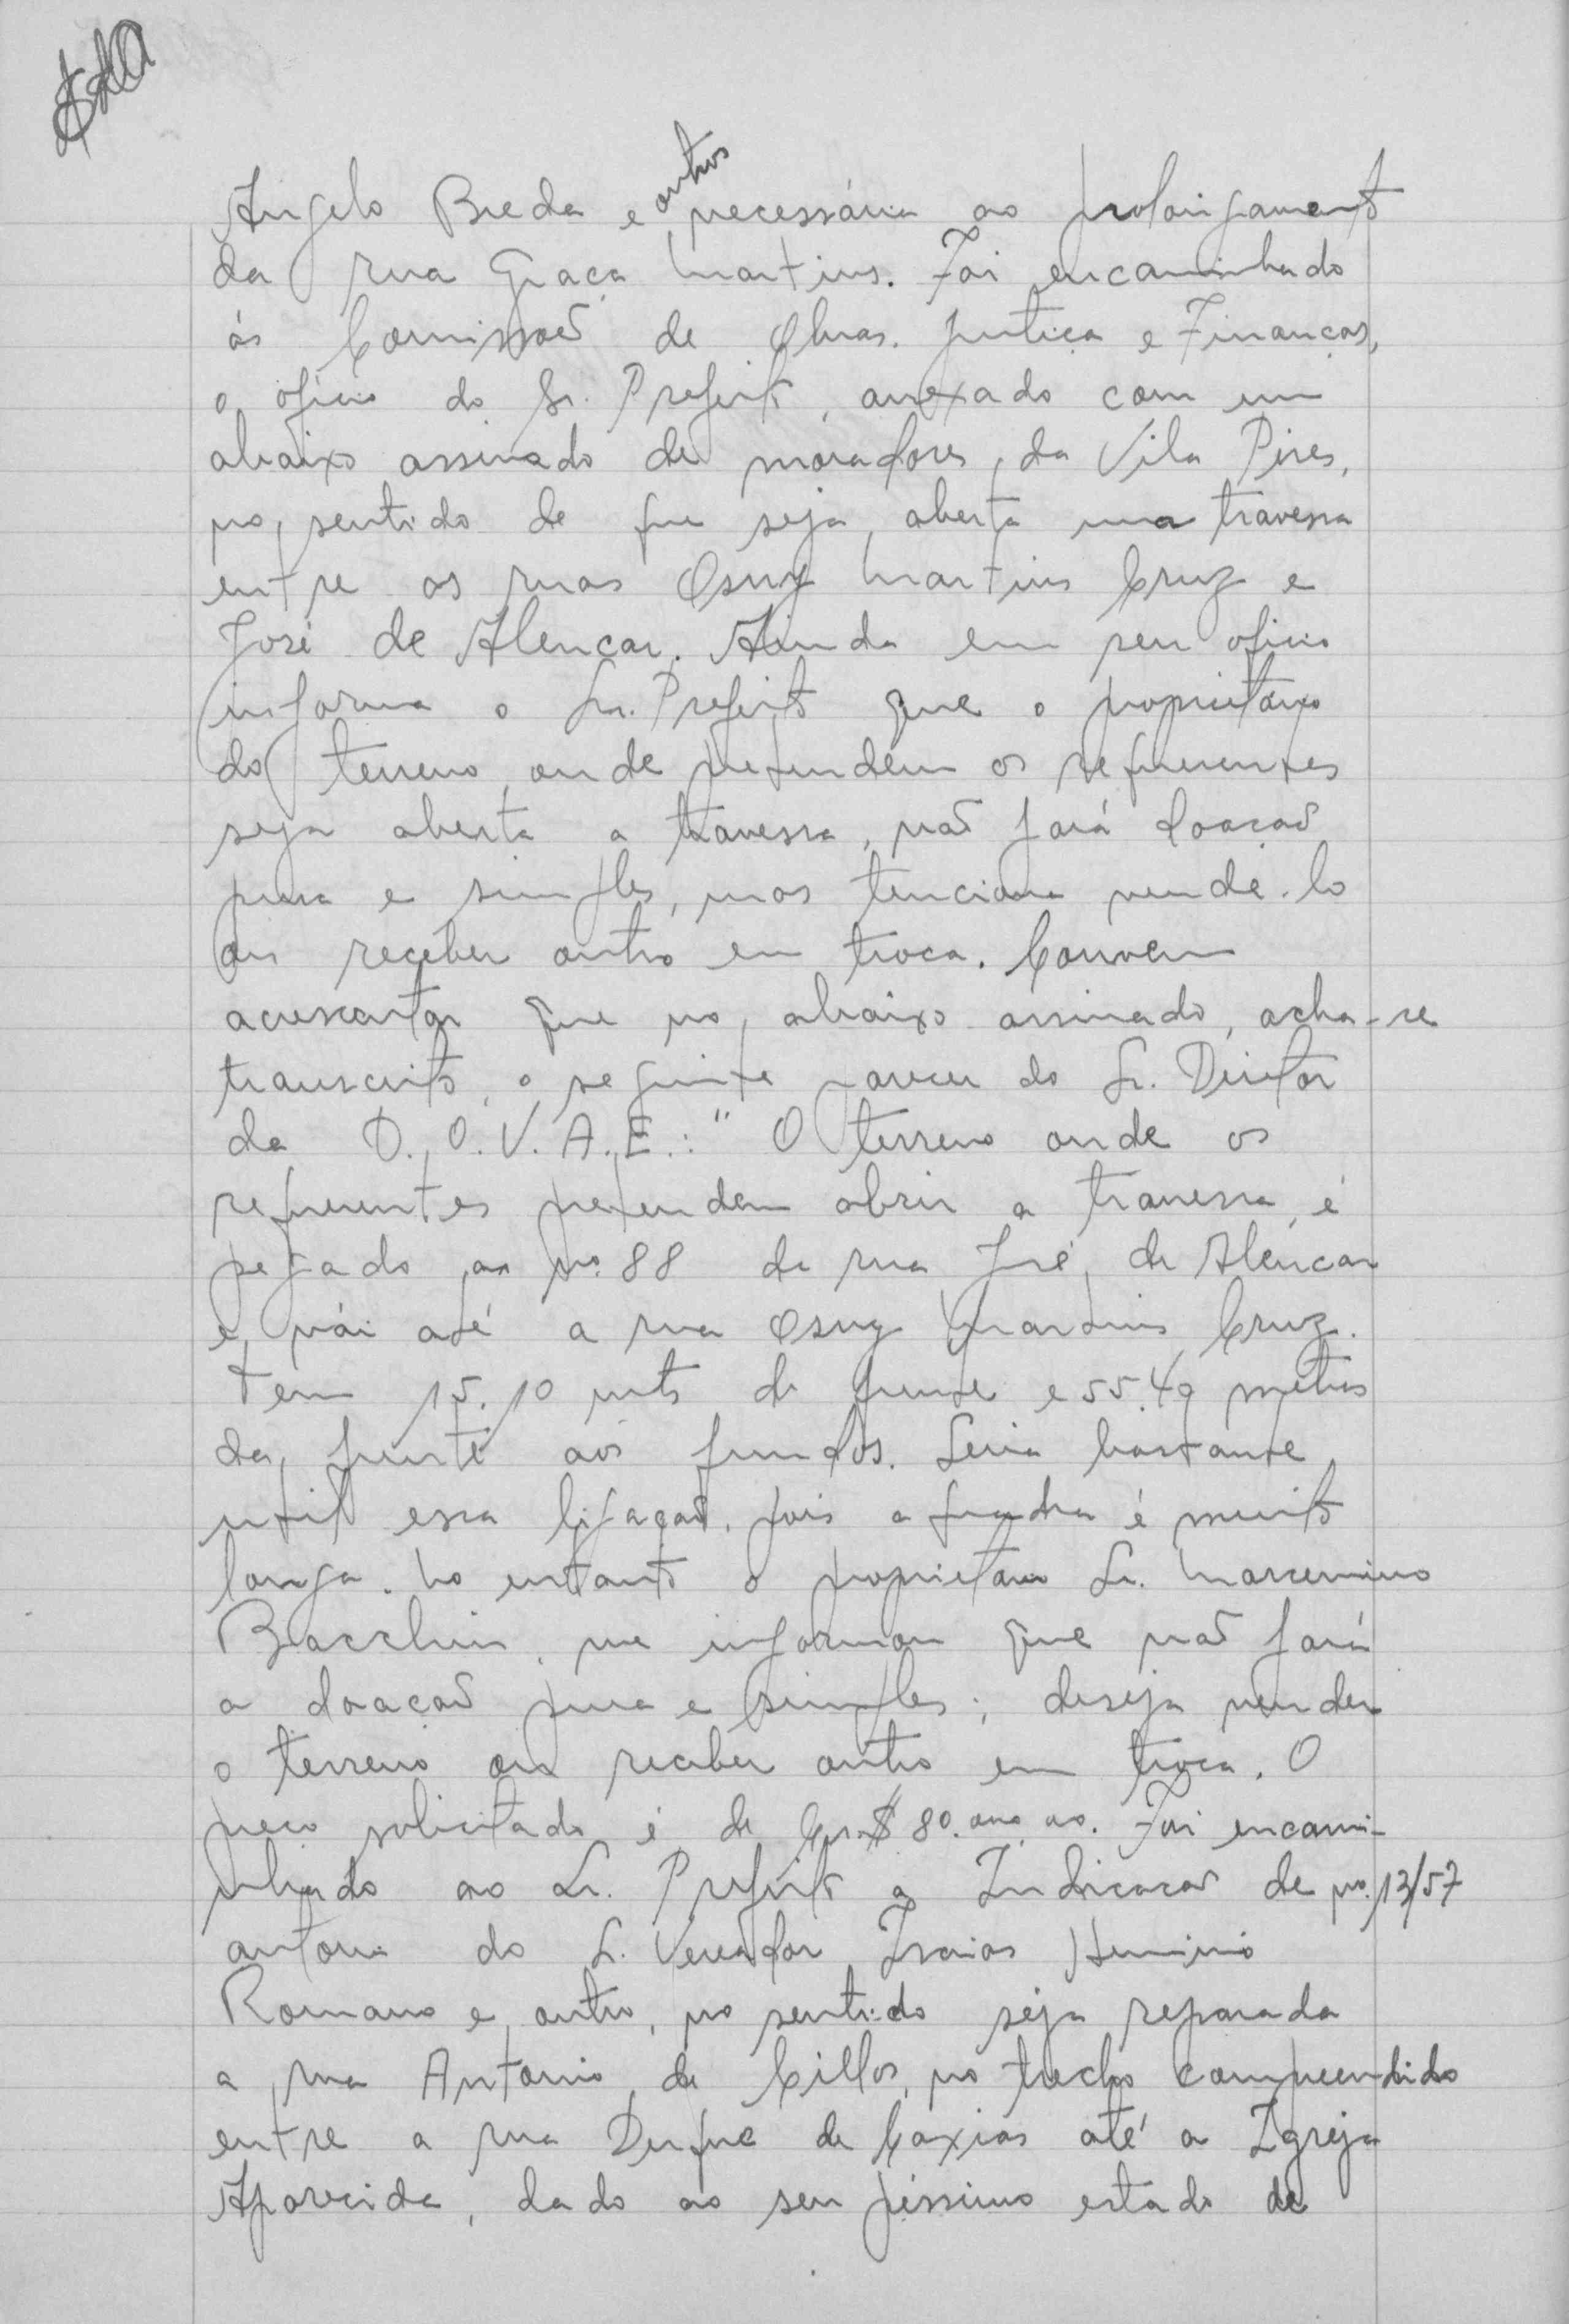 Angelo Breda e outros necessária ao prolongamento
da rua Graça Martins. Foi encaminhado
ás Comissões de Obras, Justiça e Finanças,
o oficio do Sr. Prefeito, anexado com um
abaixo assinado de moradores da Vila Pires,
no sentido de que seja aberta uma travessa
entre as ruas Osny Martins Cruz e
José de Alencar. Ainda em seu oficio
informa o Sr. Prefeito que o proprietário
do terreno onde pretendem os requerentes
seja aberta a travessa, não fará doação
pura e simples, mas tenciona vende-lo
ou receber outro em troca. Convem
acrescentar que no abaixo assinado, acha-se
transcrito o seguinte parecer do Sr. Diretor
da D.O.V.A.E.: "O terreno onde os
requerentes pretendem abrir a travessa, é
pegado ao no. 88 da rua José de Alencar
e vai até a rua Osny Martins Cruz.
Tem 15.10 mts de frente e 55.49 metros
da frente aos fundos. Seria bastante
util essa ligação, pois a quadra é muito
longa. No entanto o proprietario Sr.
Bacchin, me informou que não fará
a doação pura e simples; deseja vender
o terreno ou receber outro em troca. O
preço solicitado é de Cr.$ 80.000,00. Foi encami-
nhado ao Sr. Prefeito a Indicação de no. 13/57
autoria do Sr. Vereador Isaias Herminio
Romano e outro, no sentido seja reparada
a rua Antonio de Cillos, no trecho compreendido
entre a rua Duque de Caxias até a Igreja
Aparecida, dado ao seu péssimo estado de